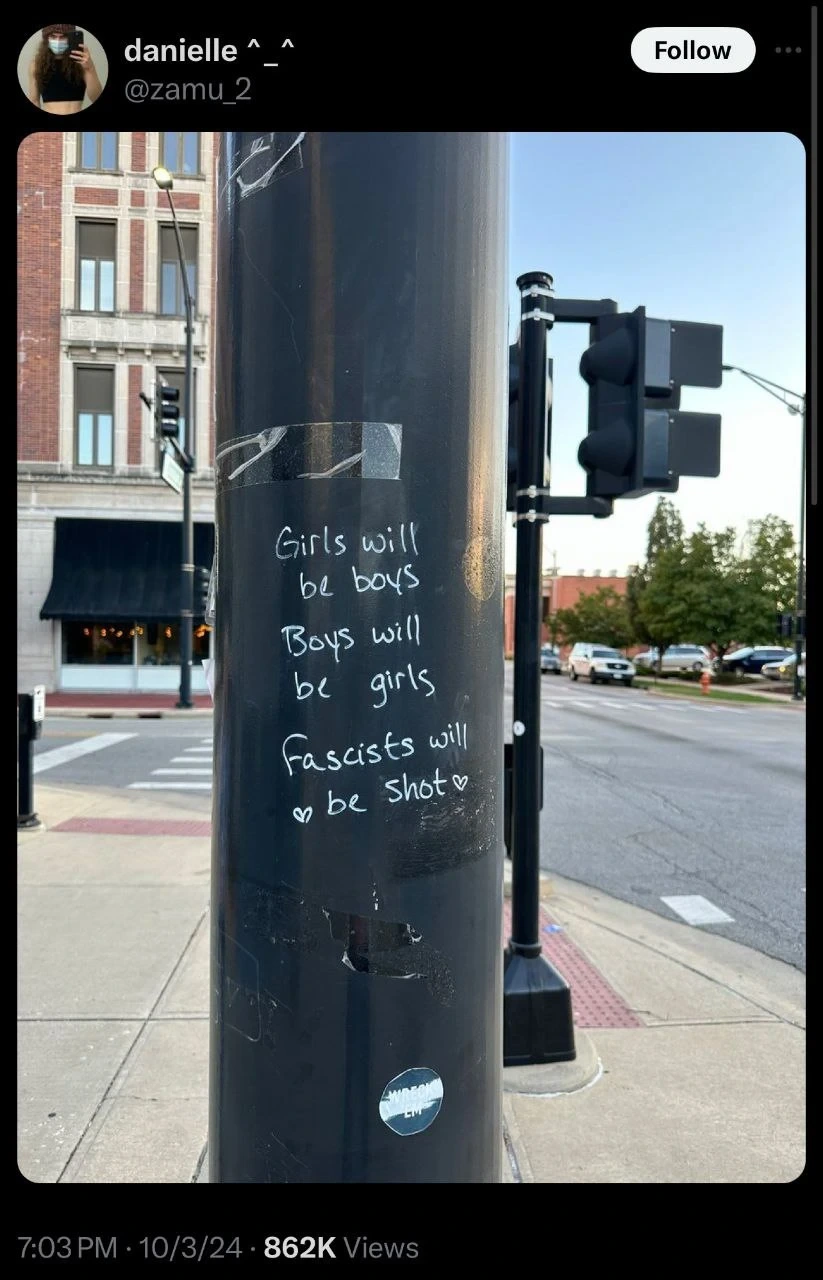 danielle ^_^
Follow
@zamu_2
Girls will
be boys
Boys will
be girls
Fascists will
♡ be shot ♡
WRECK
EM
7:03 PM · 10/3/24 · 862K Views